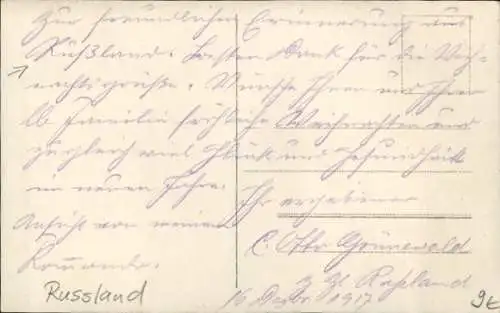 Zur freundlichen Erinnerung aus
Rußland. Besten Dank für die Weih-
nachtsgrüße. Wünsche Ihnen und Ihrer
lb Familie fröhliche Weihnachten und
zugleich viel Glück und Gesundheit
im neuen Jahre.
Ihr ergebener
Ansicht von meinem
Kommando.
C. Otto Grünewald
z Zt Rußland
16 Dezbr 1917
Russland